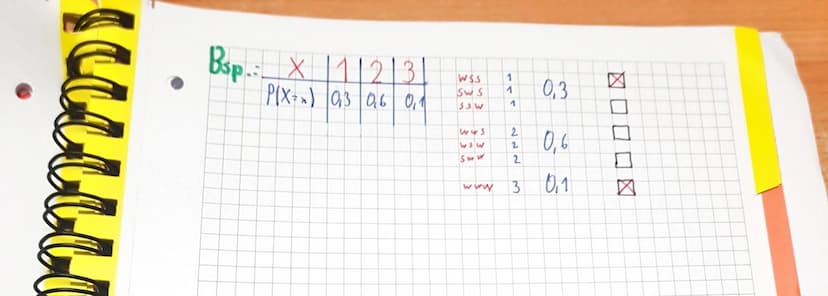 Bsp.: X 1 2 3
P(X=x) 0,3 0,6 0,1
wss 1
sws 1 0,3
ssw 1
wws 2
wsw 2 0,6
sww 2
www 3 0,1